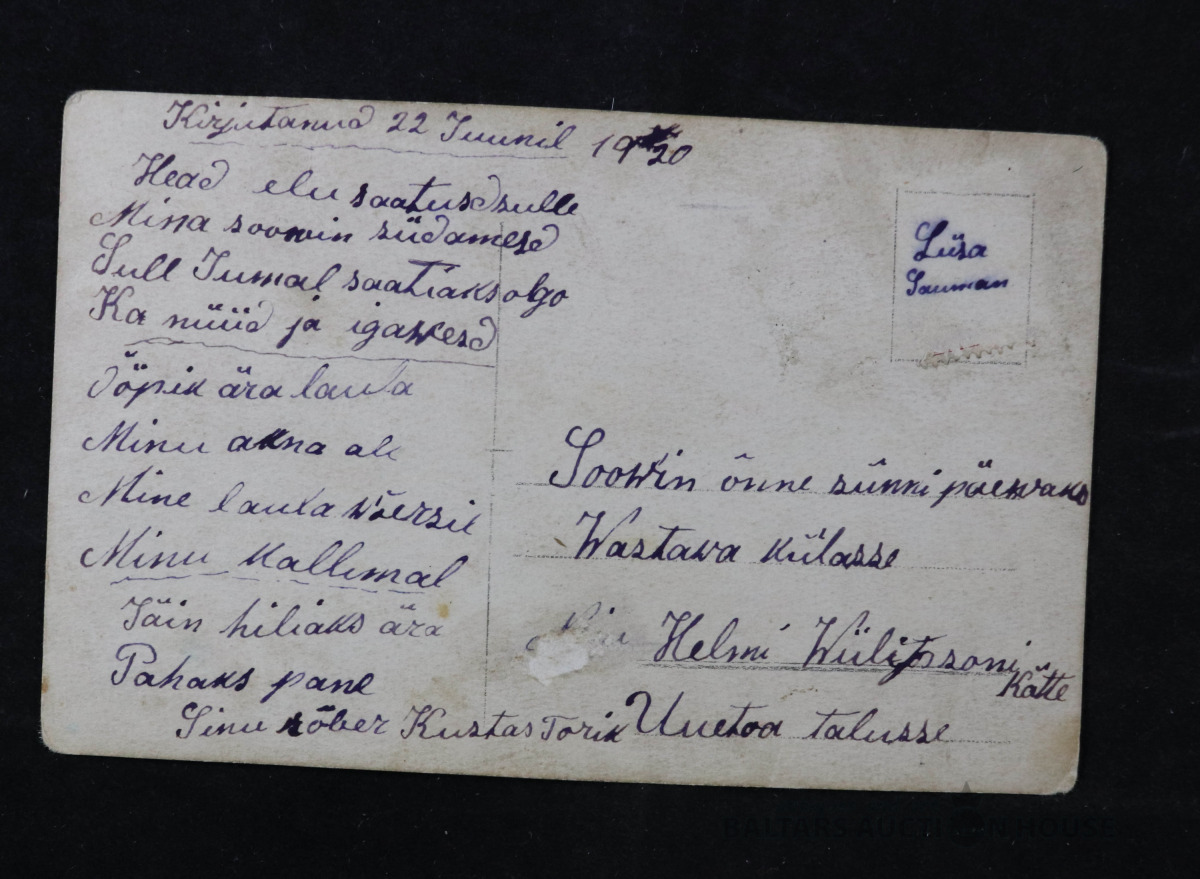 Kirjutanud 22 Juunil 1920
Head elu saatusd sulle
Mina soowin südamesd
Sull Jumal saatiaks olgo
Ka nüüd ja igawesd
Ööpik ära laula
Minu akna all
Mine laula wõersil
Minu kallimal
Jäin hiliaks ära
Pahaks pane
Sinu sõber Kustas Torik
Liisa
Sauman
Soowin õnne sünni päewaks
Wastawa külasse
Helmi Wiilipsoni
Kätte
Uuetoa talusse
BALTARS AUCTION HOUSE